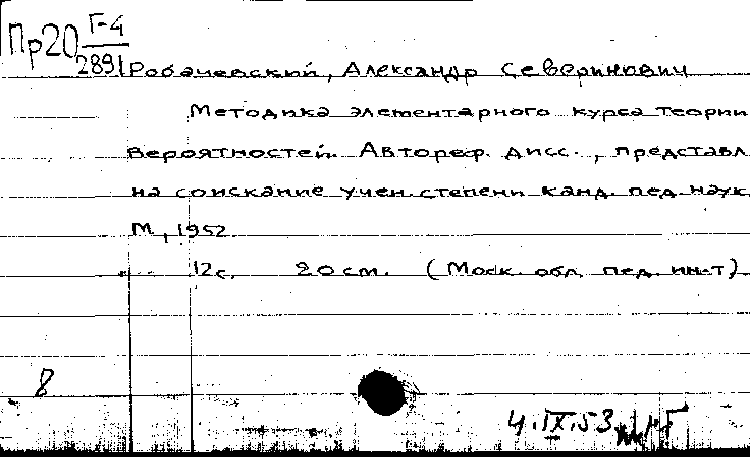 Пр20 Г-4
2891
Робачевский, Александр Северинович
Методика элементарного курса теории
вероятностей. Автореф. дисс., представл
на соискание учен. степени канд. пед. наук
М, 1952
12 с. 20 см. (Моск. обл. пед. ин-т)
8
4.IX.53